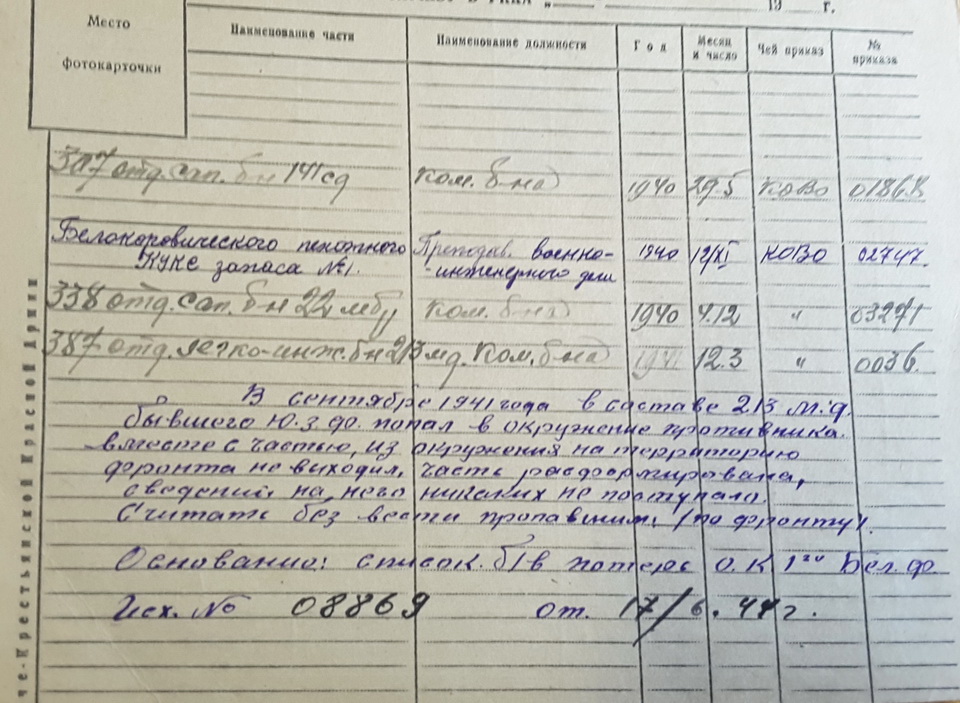 19 г.
Место фотокарточки
Наименование части Наименование должности Год Месяц и число Чей приказ № приказа
отд. сап. б-н 141 сд ком. б-на 1940 29.5 КОВО
Белокоровического пехотного Преподав. военно- 1940 12/XI КОВО 02747.
КУКС запаса №1. -инженерного дела
338 отд. сап. б-н 22 ком. б-на 1940 7.12 " 03271
387 отд. легко-инж. б-н 213 мд. Ком. б-на 1941 12.3 " 0036.
В сентябре 1941 года в составе 213 м.д.
бывшего Ю.З. фр. попал в окружение противника.
вместе с частью, из окружения на территорию
фронта не выходил, часть расформирована,
сведений на него никаких не поступало.
Считать без вести пропавшим. /по фронту/.
Основание: список б/в потерь О.К 1го Бел. фр.
Исх. № 08869 от. 17/6. 44 г.
че-Крестьянской Красной Армии